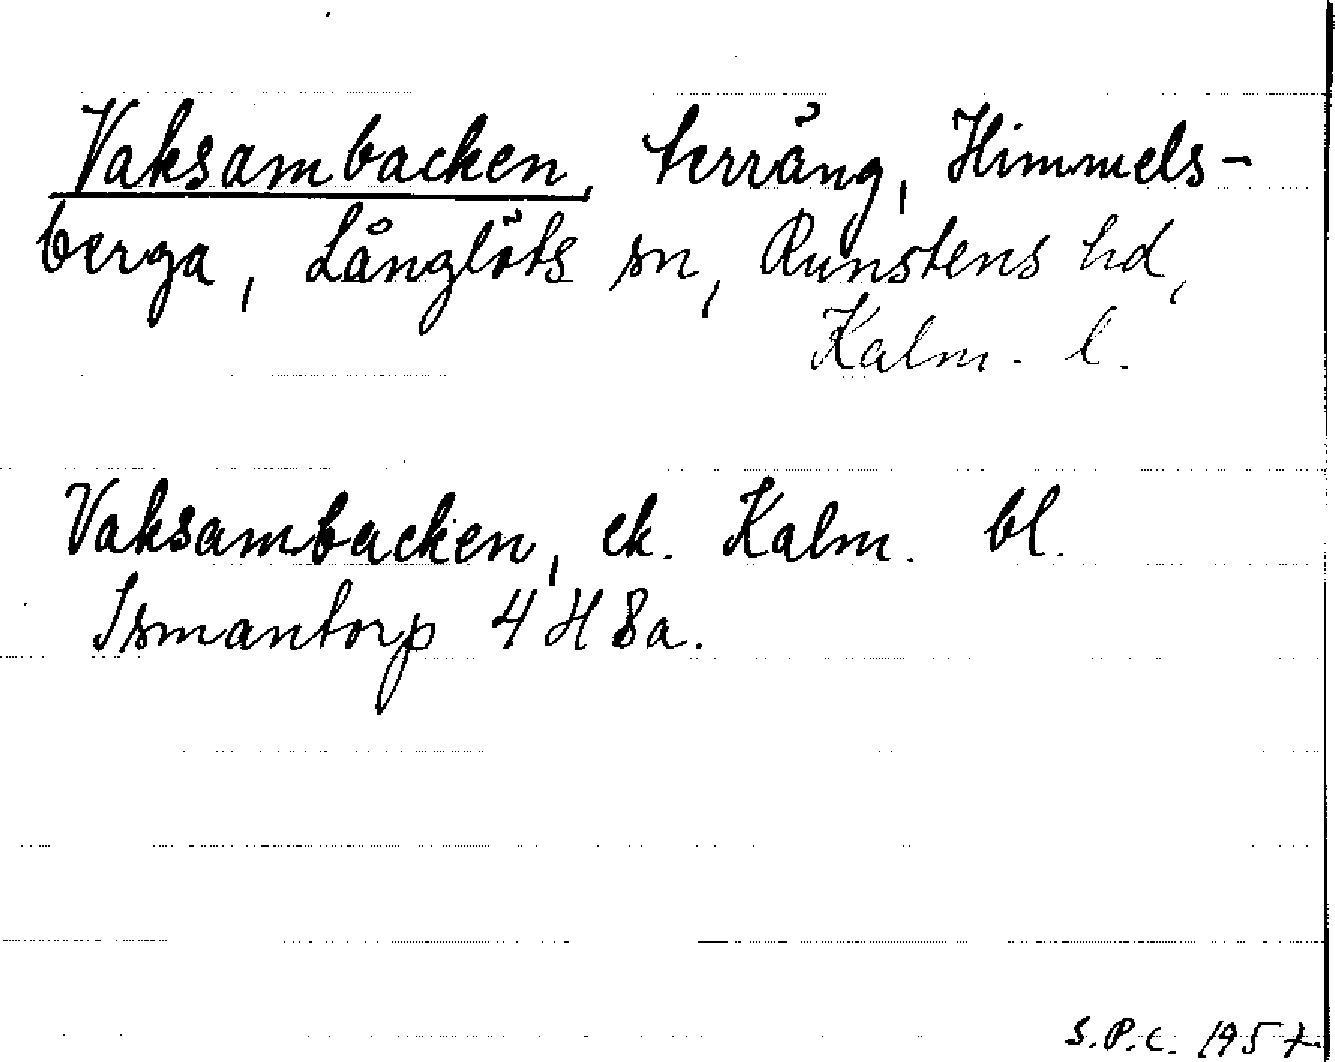 Vaksambacken, terräng, Himmels-
berga, Långlöts sn, Runstens hd,
Kalm. l.
Vaksambacken, ek. Kalm. bl.
Ismantorp 4 H 8a.
S.P.C. 1957